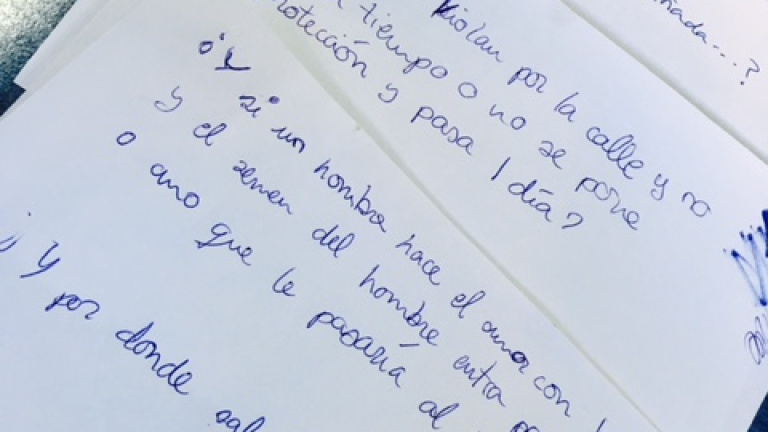 ñada...?
violan por la calle y no
tiempo o no se pone
protección y pasa 1 día?
¿Y si un hombre hace el amor con
y el semen del hombre entra
o ano que le pasaría al
¿Y por donde sal